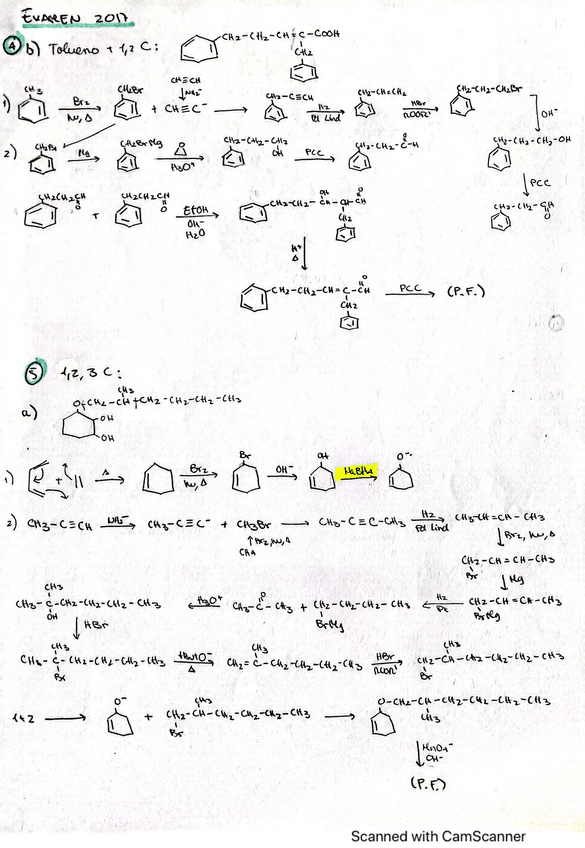 EXAMEN 2017
4 b) Tolueno + 1,2 C: CH2-CH2-CH=C-COOH
CH2
CH≡CH
1) CH3 Br2 hν, Δ CH2Br + CH≡C⁻ NH2⁻ CH2-C≡CH H2 Pd Lind CH2-CH=CH2 HBr ROOR' CH2-CH2-CH2Br
OH⁻
2) CH2Br Mg CH2BrMg O H3O⁺ CH2-CH2-CH2 OH PCC CH2-CH2-C-H O CH2-CH2-CH2-OH
PCC
CH2CH2CH O + CH2CH2CH O EtOH OH⁻ H2O CH2-CH2-CH-CH-CH OH O CH2 CH2-CH2-CH O
H⁺ Δ
CH2-CH2-CH=C-CH O PCC (P.F.)
CH2
5 1,2,3 C:
CH3
a) O-CH2-CH-CH2-CH2-CH2-CH3
OH
OH
1) + || Δ Br2 hν, Δ Br OH⁻ OH NaBH4 O⁻
2) CH3-C≡CH NH2⁻ CH3-C≡C⁻ + CH3Br CH3-C≡C-CH3 H2 Pd Lind CH3-CH=CH-CH3
Br2, hν, Δ
CH4
Br2, hν, Δ
CH2-CH=CH-CH3
Br
Mg
CH3
CH3-C-CH2-CH2-CH2-CH3 H3O⁺ CH3-C-CH3 O + CH2-CH2-CH2-CH3 H2 Pt CH2-CH=CH-CH3
OH BrMg BrMg
HBr
CH3 CH3 CH3
CH3-C-CH2-CH2-CH2-CH3 tBuO⁻ Δ CH2=C-CH2-CH2-CH2-CH3 HBr ROOR' CH2-CH-CH2-CH2-CH2-CH3
Br Br
1+2 O⁻ + CH2-CH-CH2-CH2-CH2-CH3 CH3 Br O-CH2-CH-CH2-CH2-CH2-CH3
CH3
MnO4⁻
OH⁻
(P.F.)
Scanned with CamScanner